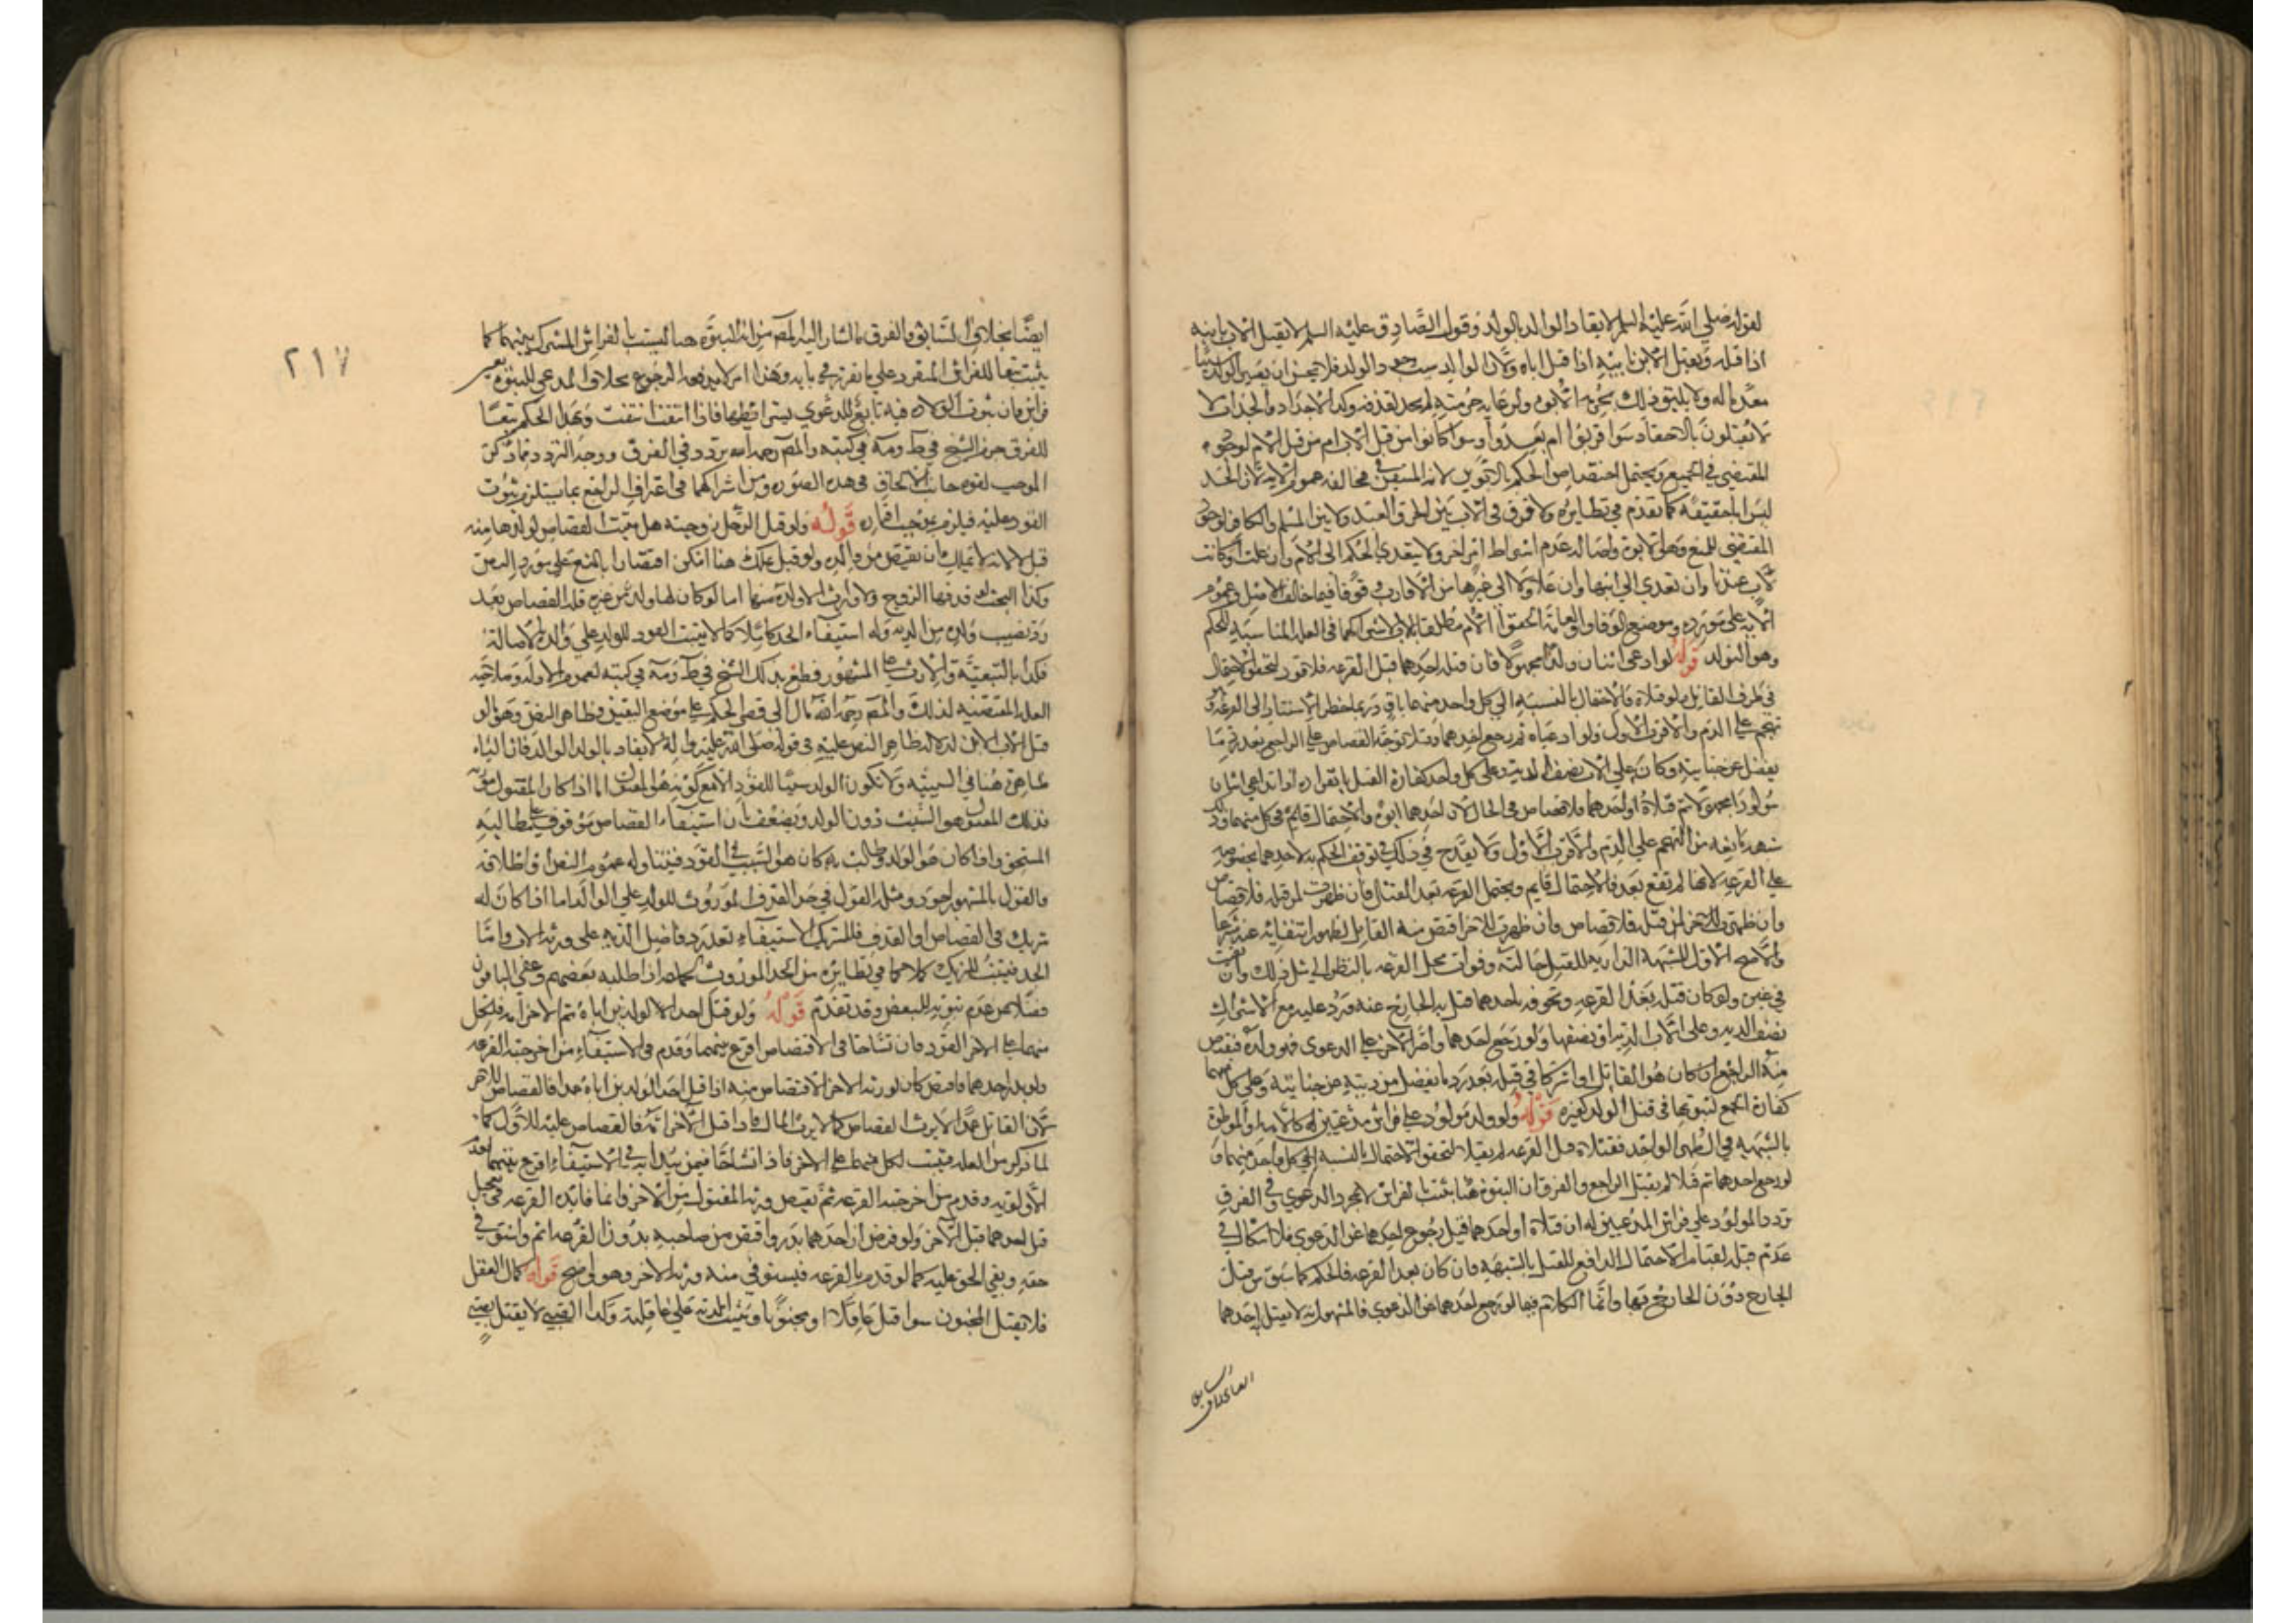 لقوله صلى الله عليه وسلم لا يقاد الوالد بالولد وقول الصادق عليه السلم لا يقتل الاب بابنه
اذا قتله ويقتل الابن بابيه اذا قتل اباه ولان الوالد سبب وجود الولد فلا يحسن ان يصير الولد سببا
معدما له ولا يليق ذلك بحرمة الابوة ولرعاية حرمته لم يحد لقذفه وكذا الاجداد والجدات لا
لا يقتلون بالاحفاد سوا قربوا ام بعدوا وسوا كانوا من قبل الاب ام من قبل الام لوجود
المقتضي في الجميع ويحتمل اختصاص الحكم بالابوين لانه المتيقن في مخالفة عموم الاية لان الجد
ليس ابا حقيقة كما تقدم في نظايره ولا فرق في الاب بين الحر والعبد ولا بين المسلم والكافر لوجود
المقتضي للمنع وهو الابوة ولاصالة عدم اشتراط امر اخر ولا يتعدى الحكم الى الام وان علت وكانت
لاب عندنا وان تعدى الى ابيها وان علا ولا الى غيرها من الاقارب وقوفا فيما خالف الاصل وعموم
الاية على مورده وموضع الوفاق والعامة الحقوا الام مطلقا بالاب لاشتراكهما في العلة المناسبة للحكم
وهو التولد قوله لو ادعى اثنان ولدا مجهولا فان قتله احدهما قبل القرعه فلا قود لتحقق الاحتمال
في طرف القاتل ولو قتلاه فالاحتمال بالنسبة الى كل واحد منهما باق وربما خطر الاستناد الى القرعة وهو
تهجم على الدم والاقرب الاول ولو ادعياه ثم رجع احدهما وقتلاه توجه القصاص على الراجع بعد رد ما
يفضل عن جنايته وكان على الاب نصف الدية وعلى كل واحد كفارة القتل بانفراده اذا تداعى اثنان
مولودا مجهولا ثم قتلاه او احدهما فلا قصاص في الحال لان احدهما ابوه والاحتمال قائم في كل منهما وذلك
شبهة مانعة من التهجم على الدم والاقرب الاول ولا يقدح في ذلك توقف الحكم به لاحدهما بخصوصه
على القرعه لانها لم تقع بعد فالاحتمال قايم ويحتمل القرعه بعد القتل فان ظهرت لمن قتله فلا قصاص
وان ظهرت للاخر لمن قتله فلا قصاص وان ظهرت للاخر اقتص منه القاتل لظهور انتفائه عنه شرعا
والاصح الاول للشبهة الدارية للقتل حالته وفوات محل القرعه بالنظر الى مثل ذلك وان بقيت
في غيره ولو كان قتله بعد القرعه ولحوقه باحدهما قتل به الخارج عنه ورد عليه مع الاشتراك
نصف الديه وعلى الاب الدية او نصفها ولو رجع احدهما واصر الاخر على الدعوى فهو ولده فيقتص
منه الراجع ان كان هو القاتل او اشتركا في قتله بعد رد ما يفضل من ديته عن جنايته وعلى كل منهما
كفارة الجمع لثبوتها في قتل الولد كغيره قوله ولو ولد مولود على فراش مدعيين له كالامة او الموطوة
بالشبهه في الطهر الواحد فقتلاه قبل القرعه لم يقتلا لتحقق الاحتمال بالنسبه الى كل واحد منهما و
لو رجع احدهما ثم قتلاه لم يقتل الراجع والفرق ان البنوة هنا تثبت بالفراش لا بمجرد الدعوى وفي الفرق
تردد المولود على فراش المدعيين له ان قتلاه او احدهما قبل رجوع احدهما عن الدعوى فلا اشكال في
عدم قتله لقيام الاحتمال الدافع للقتل بالشبهه فان كان بعد القرعه فالحكم كما سبق من قتل
الخارج دون الخارج بها وانما الكلام فيما لو رجع احدهما عن الدعوى فالمشهور انه لا يقتل احدهما
ايضا بخلاف السابق والفرق ما اشار اليه المص من ان البنوة هنا ليست بالفراش المشترك بينهما كما
يثبت بها للفراش المنفرد على ما تقرر في بابه وهذا امر لا يدفعه الرجوع بخلاف المدعى للبنوة بغير
فراش فان ثبوت الولاده فيه تابع للدعوى بشرائطها فاذا انتفت انتفت وبهذا الحكم تبعا
للفرق جزم الشيخ في ط ومه في كتبه والمص رحمه الله تردد في الفرق ووجه التردد مما ذكر من
الموجب لقوه جانب الالحاق في هذه الصوره ومن اشتراكهما في اعتراف الراجع بما يستلزم ثبوت
القود عليه فيلزم بموجب اقراره قوله ولو قتل الرجل زوجته هل يثبت القصاص لولدها منه
قيل لا لانه لا يملك ان يقتص من والده ولو قيل يملك هنا امكن اقتصارا بالمنع على مورد النص
وكذا البحث لو قذفها الزوج ولا وارث الا ولده منها اما لو كان لها ولد من غيره فله القصاص بعد
رد نصيب ولده من الديه وله استيفاء الحد كاملا كما لا يثبت القود للولد على والده بالاصالة
فكذا بالتبعيه والارث على المشهور وقطع بذلك الشيخ في ط ومه في كتبه لعموم الاولة وصلاحيه
العله المقتضيه لذلك والمص رحمه الله مال الى قصر الحكم على موضع اليقين وظاهر النص وهو ان
قتل الاب الابن لدلالة ظاهر النص عليه في قوله صلى الله عليه واله لا يقاد بالولد الوالد فان الباء
ظاهرة هنا في السببيه ولا يكون الولد سببا للقود الا مع كونه هو المقتول اما اذا كان المقتول مورثه
فذلك المقتول هو السبب دون الولد ويضعف بان استيفاء القصاص موقوف على مطالبة
المستحق واذا كان هو الولد وطالب به كان هو السبب في القود فيتناوله عموم النص او اطلاقه
والقول بالمشهور اجود ومثله القول في حد القذف الموروث للولد على الوالد اما اذا كان له
شريك في القصاص او القذف فللشريك الاستيفاء بعد رد فاضل الدية على ورثة الاب واما
الحد فيثبت للشريك كاملا كما في نظايره من الحد الموروث لجماعه اذا طلبه بعضهم وعفى الباقون
فضلا عن عدم ثبوته للبعض وقد تقدم قوله ولو قتل احد الولدين اباه ثم الاخر امه فلكل
منهما على الاخر القود فان تشاحا في الاقتصاص اقرع بينهما وقدم في الاستيفاء من اخرجته القرعه
ولو بدر احدهما فاقتص كان لورثه الاخر الاقتصاص منه اذا قتل احد الولدين اباه عمدا فالقصاص للاخر
لان القاتل عمدا لا يرث القصاص كما لا يرث المال فاذا قتل الاخر امه فالقصاص عليه للاول كما
لما ذكر من العله فيثبت لكل منهما على الاخر فاذا تشاحا فيمن يبدا به في الاستيفاء اقرع بينهما لعدم
الاولوية وقدم من اخرجته القرعه ثم يقتص ورثة المقتول من الاخر وانما فايده القرعه في تعجيل
قتل احدهما قبل الاخر ولو فرض ان احدهما بدر واقتص من صاحبه بدون القرعه اثم واستوفى
حقه وبقي الحق عليه كما لو قدم بالقرعه فيستوفي منه ورثه الاخر وهو واضح قوله كمال العقل
فلا يقتل المجنون سوا قتل عاقلا او مجنونا وتثبت الدية على عاقلته وكذا الصبي لا يقتل بصبي
٢١٧